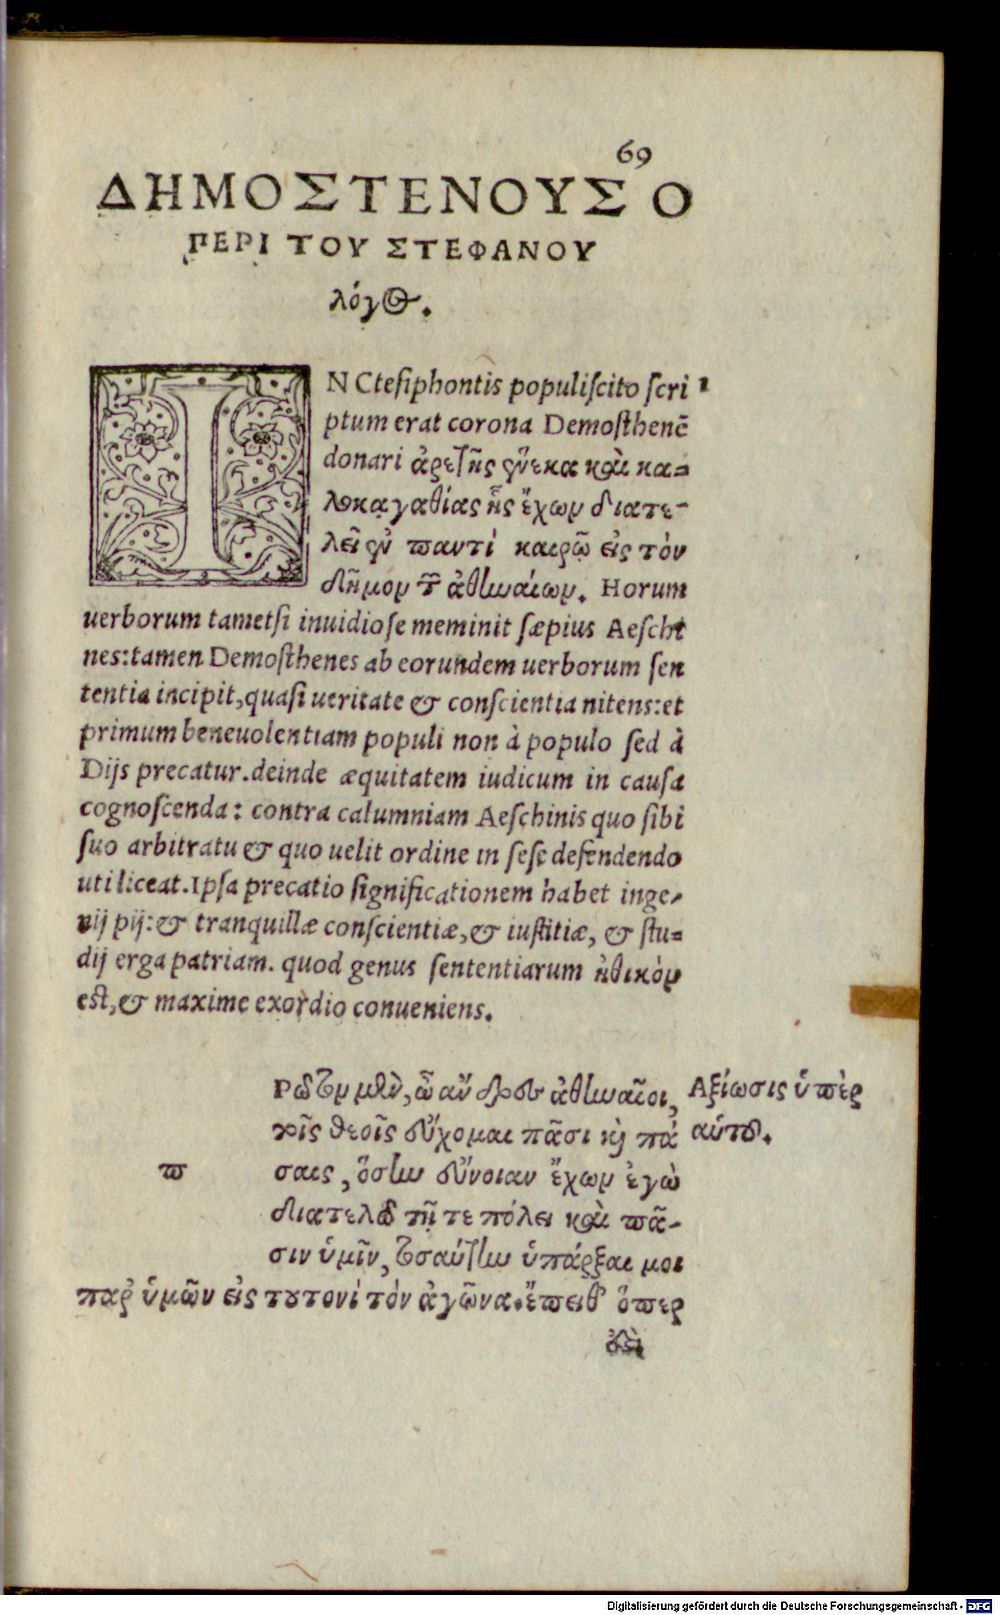 69
ΔΗΜΟΣΤΕΝΟΥΣ Ο
ΠΕΡΙ ΤΟΥ ΣΤΕΦΑΝΟΥ
λόγος.
IN Ctesiphontis populiscito scri 1
ptum erat corona Demosthenē
donari ἀρετῆς ἕνεκα καὶ κα=
λοκαγαθίας ἧς ἔχων διατε-
λεῖ ἐν παντὶ καιρῷ εἰς τὸν
δῆμον τῶν ἀθηναίων. Horum
uerborum tametsi inuidiose meminit sæpius Aeschi
nes: tamen Demosthenes ab eorundem uerborum sen
tentia incipit, quasi ueritate & conscientia nitens: et
primum beneuolentiam populi non à populo sed à
Dijs precatur. deinde æquitatem iudicum in causa
cognoscenda: contra calumniam Aeschinis quo sibi
suo arbitratu & quo uelit ordine in sese defendendo
uti liceat. Ipsa precatio significationem habet inge-
nij pij: & tranquillæ conscientiæ, & iustitiæ, & stu=
dij erga patriam. quod genus sententiarum ἠθικόν
est, & maxime exordio conueniens.
Ρῶτον μὲν, ὦ ἄνδρες ἀθηναῖοι, Αξίωσις ὑπὲρ
τοῖς θεοῖς εὔχομαι πᾶσι καὶ πά αὑτοῦ.
π σαις, ὅσην εὔνοιαν ἔχων ἐγὼ
διατελῶ τῇ τε πόλει καὶ πᾶ-
σιν ὑμῖν, τοσαύτην ὑπάρξαι μοι
παρ' ὑμῶν εἰς τουτονὶ τὸν ἀγῶνα. ἔπειθ' ὅπερ
ἐστὶ
Digitalisierung gefördert durch die Deutsche Forschungsgemeinschaft - DFG